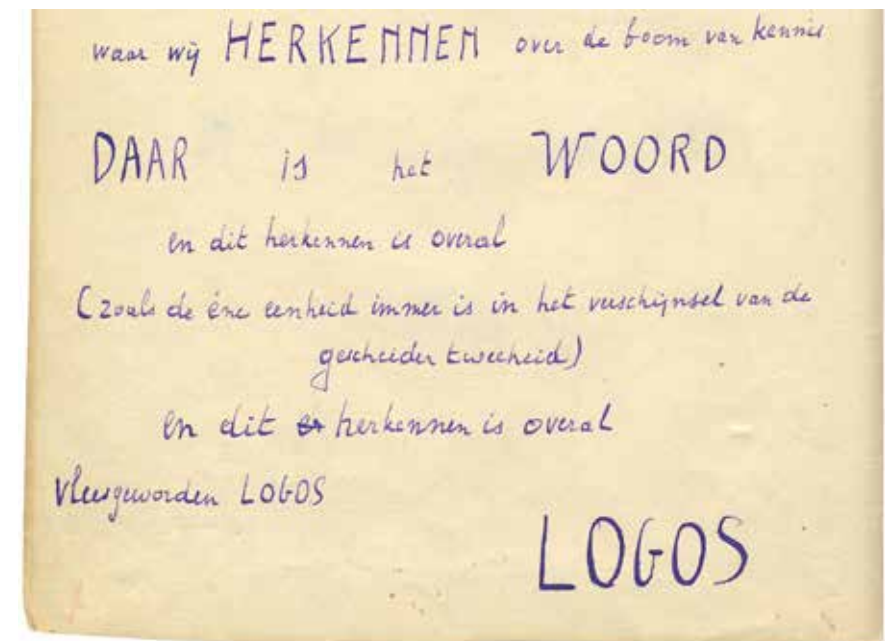 waar wij HERKENNEN over de boom van kennis
DAAR is het WOORD
en dit herkennen is overal
(zoals de éne eenheid immer is in het verschijnsel van de
gescheiden tweeheid)
en dit herkennen is overal
Vleesgeworden LOGOS
LOGOS